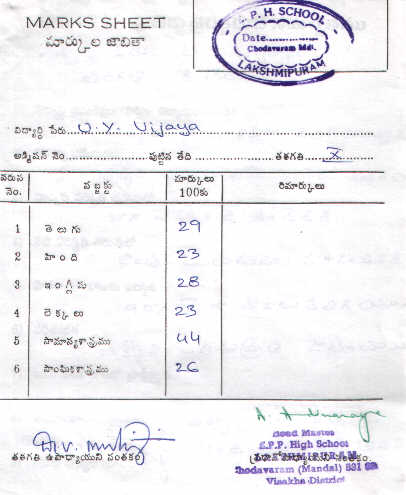 MARKS SHEET
మార్కుల జాబితా
P. H. SCHOOL
Date................
Chodavaram Mdl.
LAKSHMIPURAM
విద్యార్థి పేరు Vijaya
అడ్మిషన్ నెం. పుట్టిన తేది తరగతి X
వరుస నెం. సబ్జక్టు మార్కులు 100కు రిమార్కులు
1 తెలుగు 29
2 హింది 23
3 ఇంగ్లీషు 28
4 లెక్కలు 23
5 సామాన్యశాస్త్రము 44
6 సాంఘికశాస్త్రము 26
Head Master
Z.P.P. High School
LAKSHMIPURAM
తరగతి ఉపాధ్యాయుని సంతకం
Chodavaram (Mandal) 531
Visakha District